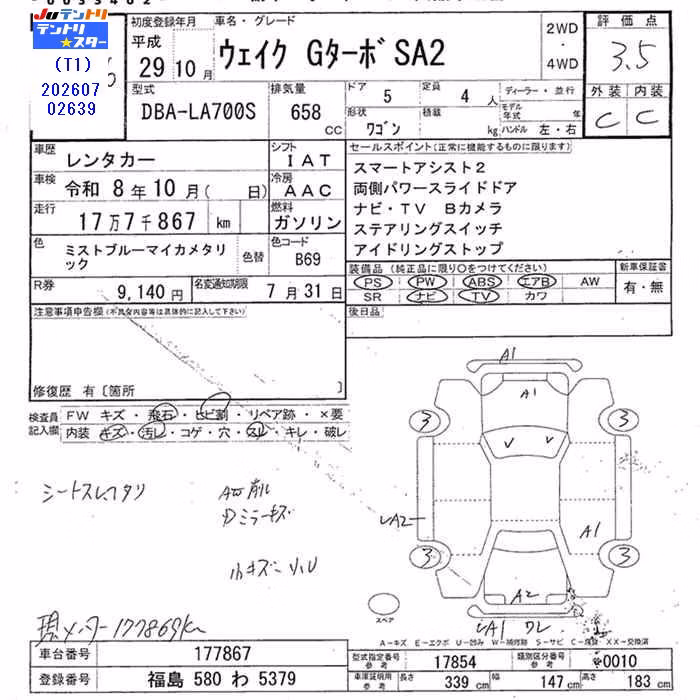 JUテントリ
テントリ★スター
(T1)
202607
02639
初度登録年月
平成
29年10月
車名・グレード
ウェイク Gターボ SA2
2WD
・
4WD
評価点
3.5
外装 内装
C C
型式
DBA-LA700S
排気量
658
cc
ドア
5
定員
4人
形状
ワゴン
積載
kg
ディーラー・並行
モデル年式 年
ハンドル 左・右
車歴
レンタカー
シフト
IAT
車検
令和 8年10月( 日)
冷房
AAC
走行
17万7千867 km
燃料
ガソリン
色
ミストブルーマイカメタリック
色替
色コード
B69
R券
9,140円
名変通知期限
7月31日
セールスポイント(正常に機能するものに限ります)
スマートアシスト2
両側パワースライドドア
ナビ・TV Bカメラ
ステアリングスイッチ
アイドリングストップ
装備品(純正品に限り○をつけてください)
PS PW ABS エアB AW
SR ナビ TV カワ
新車保証書
有・無
後日品
注意事項申告欄(不具合内容等は具体的に記入して下さい)
修復歴 有〔箇所 〕
検査員記入欄
FW キズ・飛石・ヒビ割・リペア跡・×要
内装 キズ・汚レ・コゲ・穴・スレ・キレ・破レ
シートスレ
AW削レ
ミラーキズ
小キズ
現メーター177869km
A1
A1
3 3
A2
A1
3 3
A2
A1 ワレ
スペア
A-キズ E-エクボ U-凹み W-補修跡 S-サビ C-腐蝕 XX-交換済
車台番号
177867
登録番号
福島 580 わ 5379
型式指定番号 参考
17854
類別区分番号 参考
0010
車庫証明用 参考
長さ
339 cm
幅
147 cm
高さ
183 cm